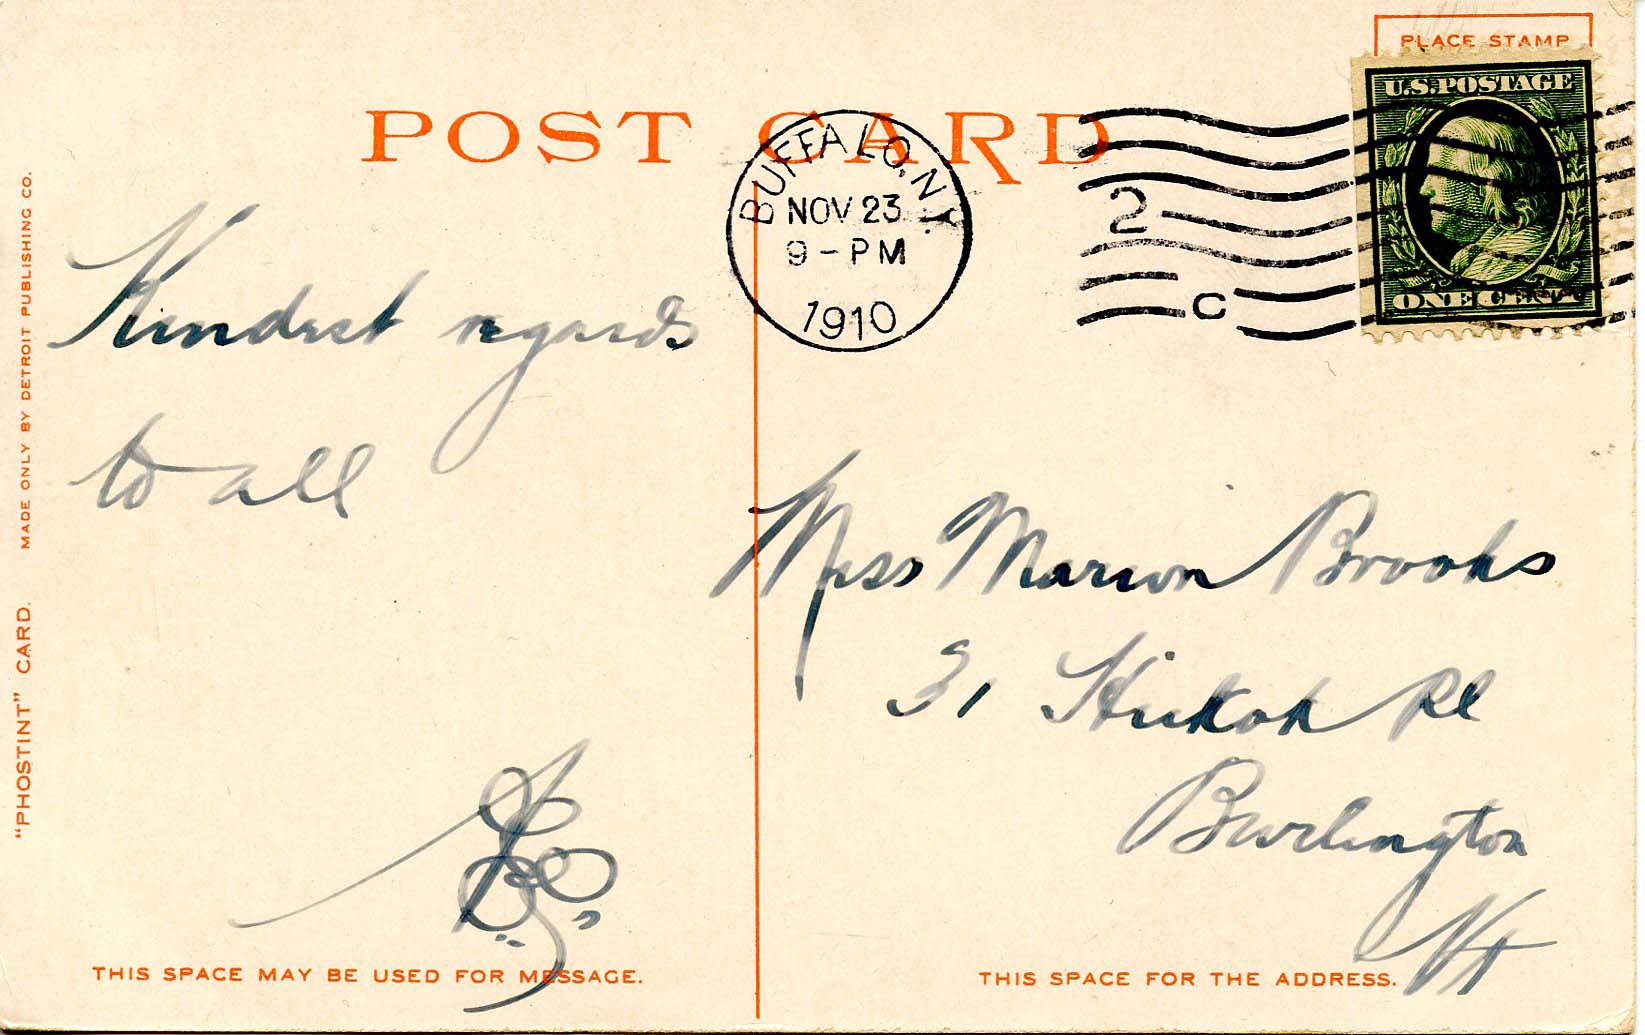 PLACE STAMP
U.S. POSTAGE
ONE CENT
POST CARD
BUFFALO, N.Y.
NOV 23
9 - PM
1910
2
C
Kindest regards
to all
Miss Marion Brooks
31 Hickok Pl
Burlington
Vt
THIS SPACE MAY BE USED FOR MESSAGE.
THIS SPACE FOR THE ADDRESS.
"PHOSTINT" CARD. MADE ONLY BY DETROIT PUBLISHING CO.